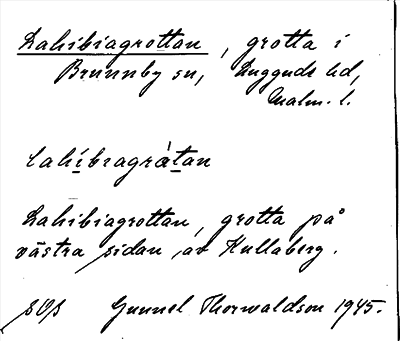 Lahibiagrottan, grotta i
Brunnby sn, Luggude hd,
Malm. l.
lahibiagråtan
Lahibiagrottan, grotta på
västra sidan av Kullaberg.
Gunnel Thorwaldson 1945.